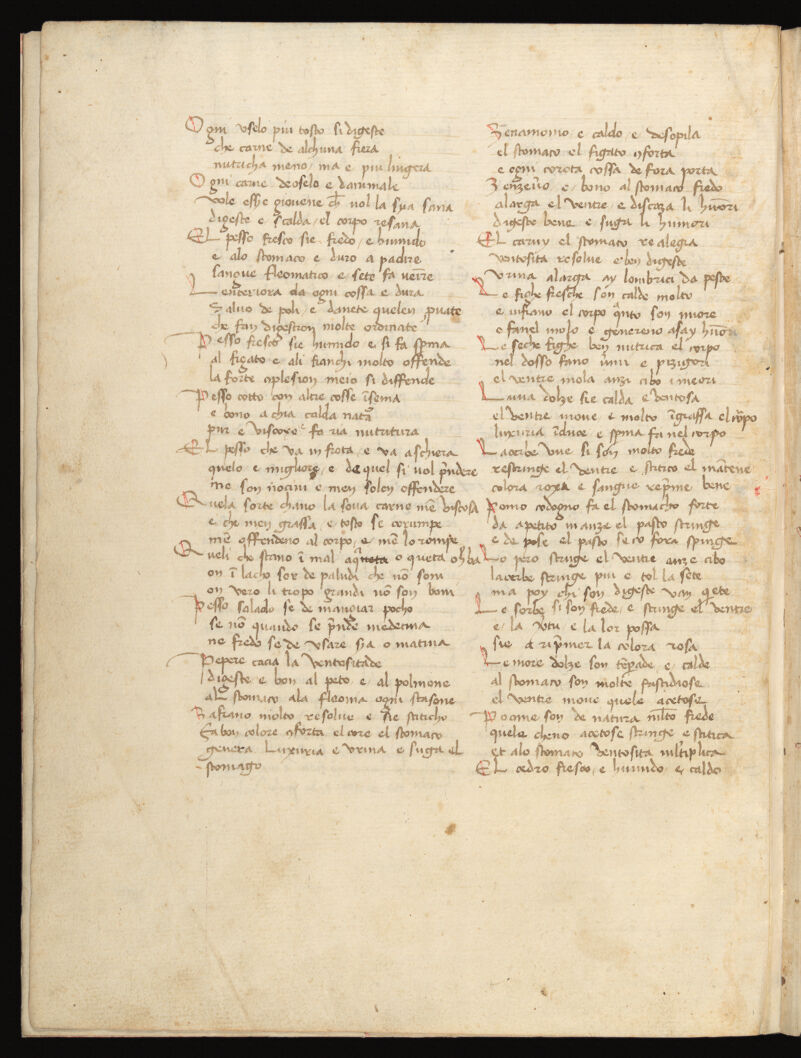 Ogni uselo piu tosto si digeste
che carne de alchuna fiera
nutricha meno ma e piu lingera
Ogni carne de oselo e danimale
Vole esse giovene che vol la sua sana
digeste e scalda el corpo resana
El pesso fresco sie fredo e humido
e alo stomaco e duro a padire
sangue fleomatico e sete fa venire
Lenteriora da ogni cossa e dura
Salvo de poli e danete quelen puate
che fan digestion molte ordinate
Pesso fresco sie humido e si fa spma
al figato e ali fianchi molto offende
la forte cplesion meio si diffende
Pesso cotto con altre cosse isema
e bono a chia calda nata
pur e viscoxe fa ria nutritura
El pesso che va in frota e va a schiera
quelo e migliore e de quel si vol prndere
me son nogivi e men solen offendere
Quela sorte chano la soua carne me vistosa
e che men grassa e tosto se corumpe
me offendeno al corpo e me lo rompe
Queli che stano i mal aqueta o queta
on i lacho sor de paludi che no soni
on vero li tropo grandi no son boni
Pesso salado se de mangiar pocho
se no quando se prnde medecina
ne fredo se de usare sia o matina
Pepere cacia la ventositade
digeste e bon al peto e al polmone
al stomaco ala fleoma ogni stasone
Zafrano molto resolve e sie stiticho
fa bon colore cforta el core el stomaco
genera luxuria e urina e suga el
stomago
Zenamomo e caldo e desopila
el stomaco el figato cforta
e ogni corota cossa de fora porta
Zenzevro e bono al stomaco fredo
alarga el ventre e discaza li huori
digeste bene e suga li humori
El caruy el stomaco realegra
Ventosita resolve e ben digeste
Urina alarga ay lombrici da peste
Le fighe fresche son calde molto
e infiano el corpo qnto son mure
e fanel molo e genereno asay huori
Le seche fighe ben nutrica el corpo
nel dosso fano umi e pizigori
el ventre mola anzi cibo i meori
Luua dolze sie calda e ventosa
el ventre move e molto igrassa el corpo
luxuria iduce e spma fa nel corpo
Lacerbe uue si son molto frede
restringe el ventre e stitico el mantene
colora roxa e sangue reprme bene
Pomo codogno fa el stomacho forte
da apetito inanze el pasto stringe
e de pose el pasto seco fora spinge
Lo pero stringe el ventre anze cibo
lacerbe stringe piu e tol la sete
ma poy chi son digeste van qete
Le sorbe si son frede e stringe el ventre
e la vtu e la lor possa
sie a riprmer la colora rosa
Le more dolze son teprade e calde
al stomaco son molte fastidiose
el ventre move quele acetose
Pocime son de natura mlto frede
quele cheno acetose stringe e stitica
et alo stomaco ventosita multiplica
El cedro fresco e humido e caldo